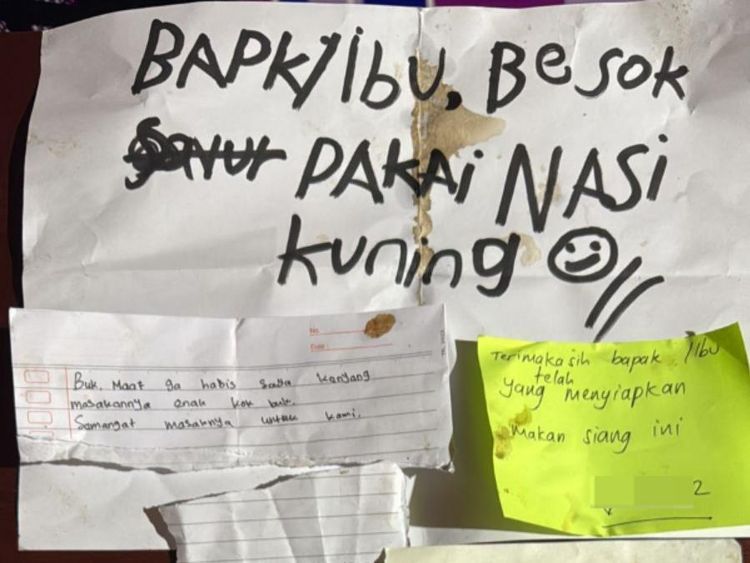 BAPK/Ibu, Besok
Sayur PAKAi NASi
kuning
No.
Date:
Buk, Maaf ga habis saya kenyang
masakannya enak kok buk.
Semangat masaknya untuk kami.
Terimakasih bapak /Ibu
telah
yang menyiapkan
makan siang ini
2